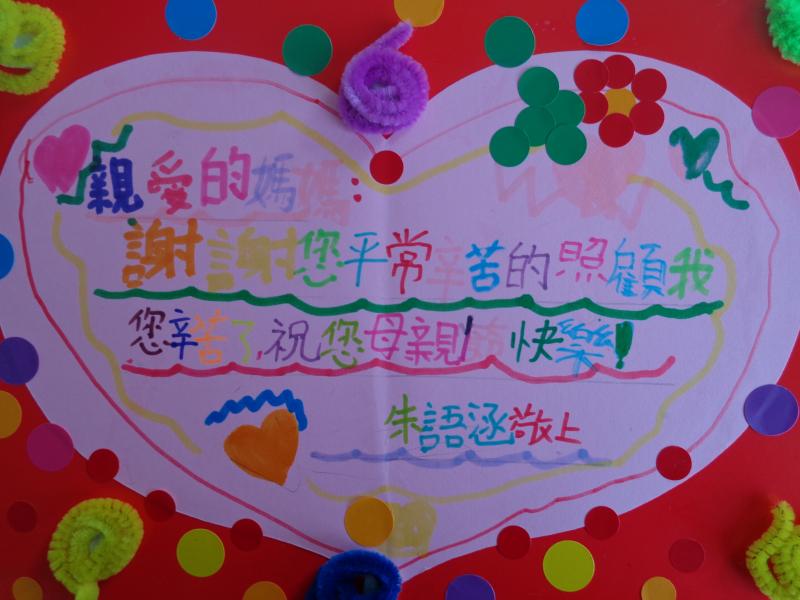 親愛的媽媽:
謝謝您平常辛苦的照顧我
您辛苦了,祝您母親節快樂!
朱語涵敬上